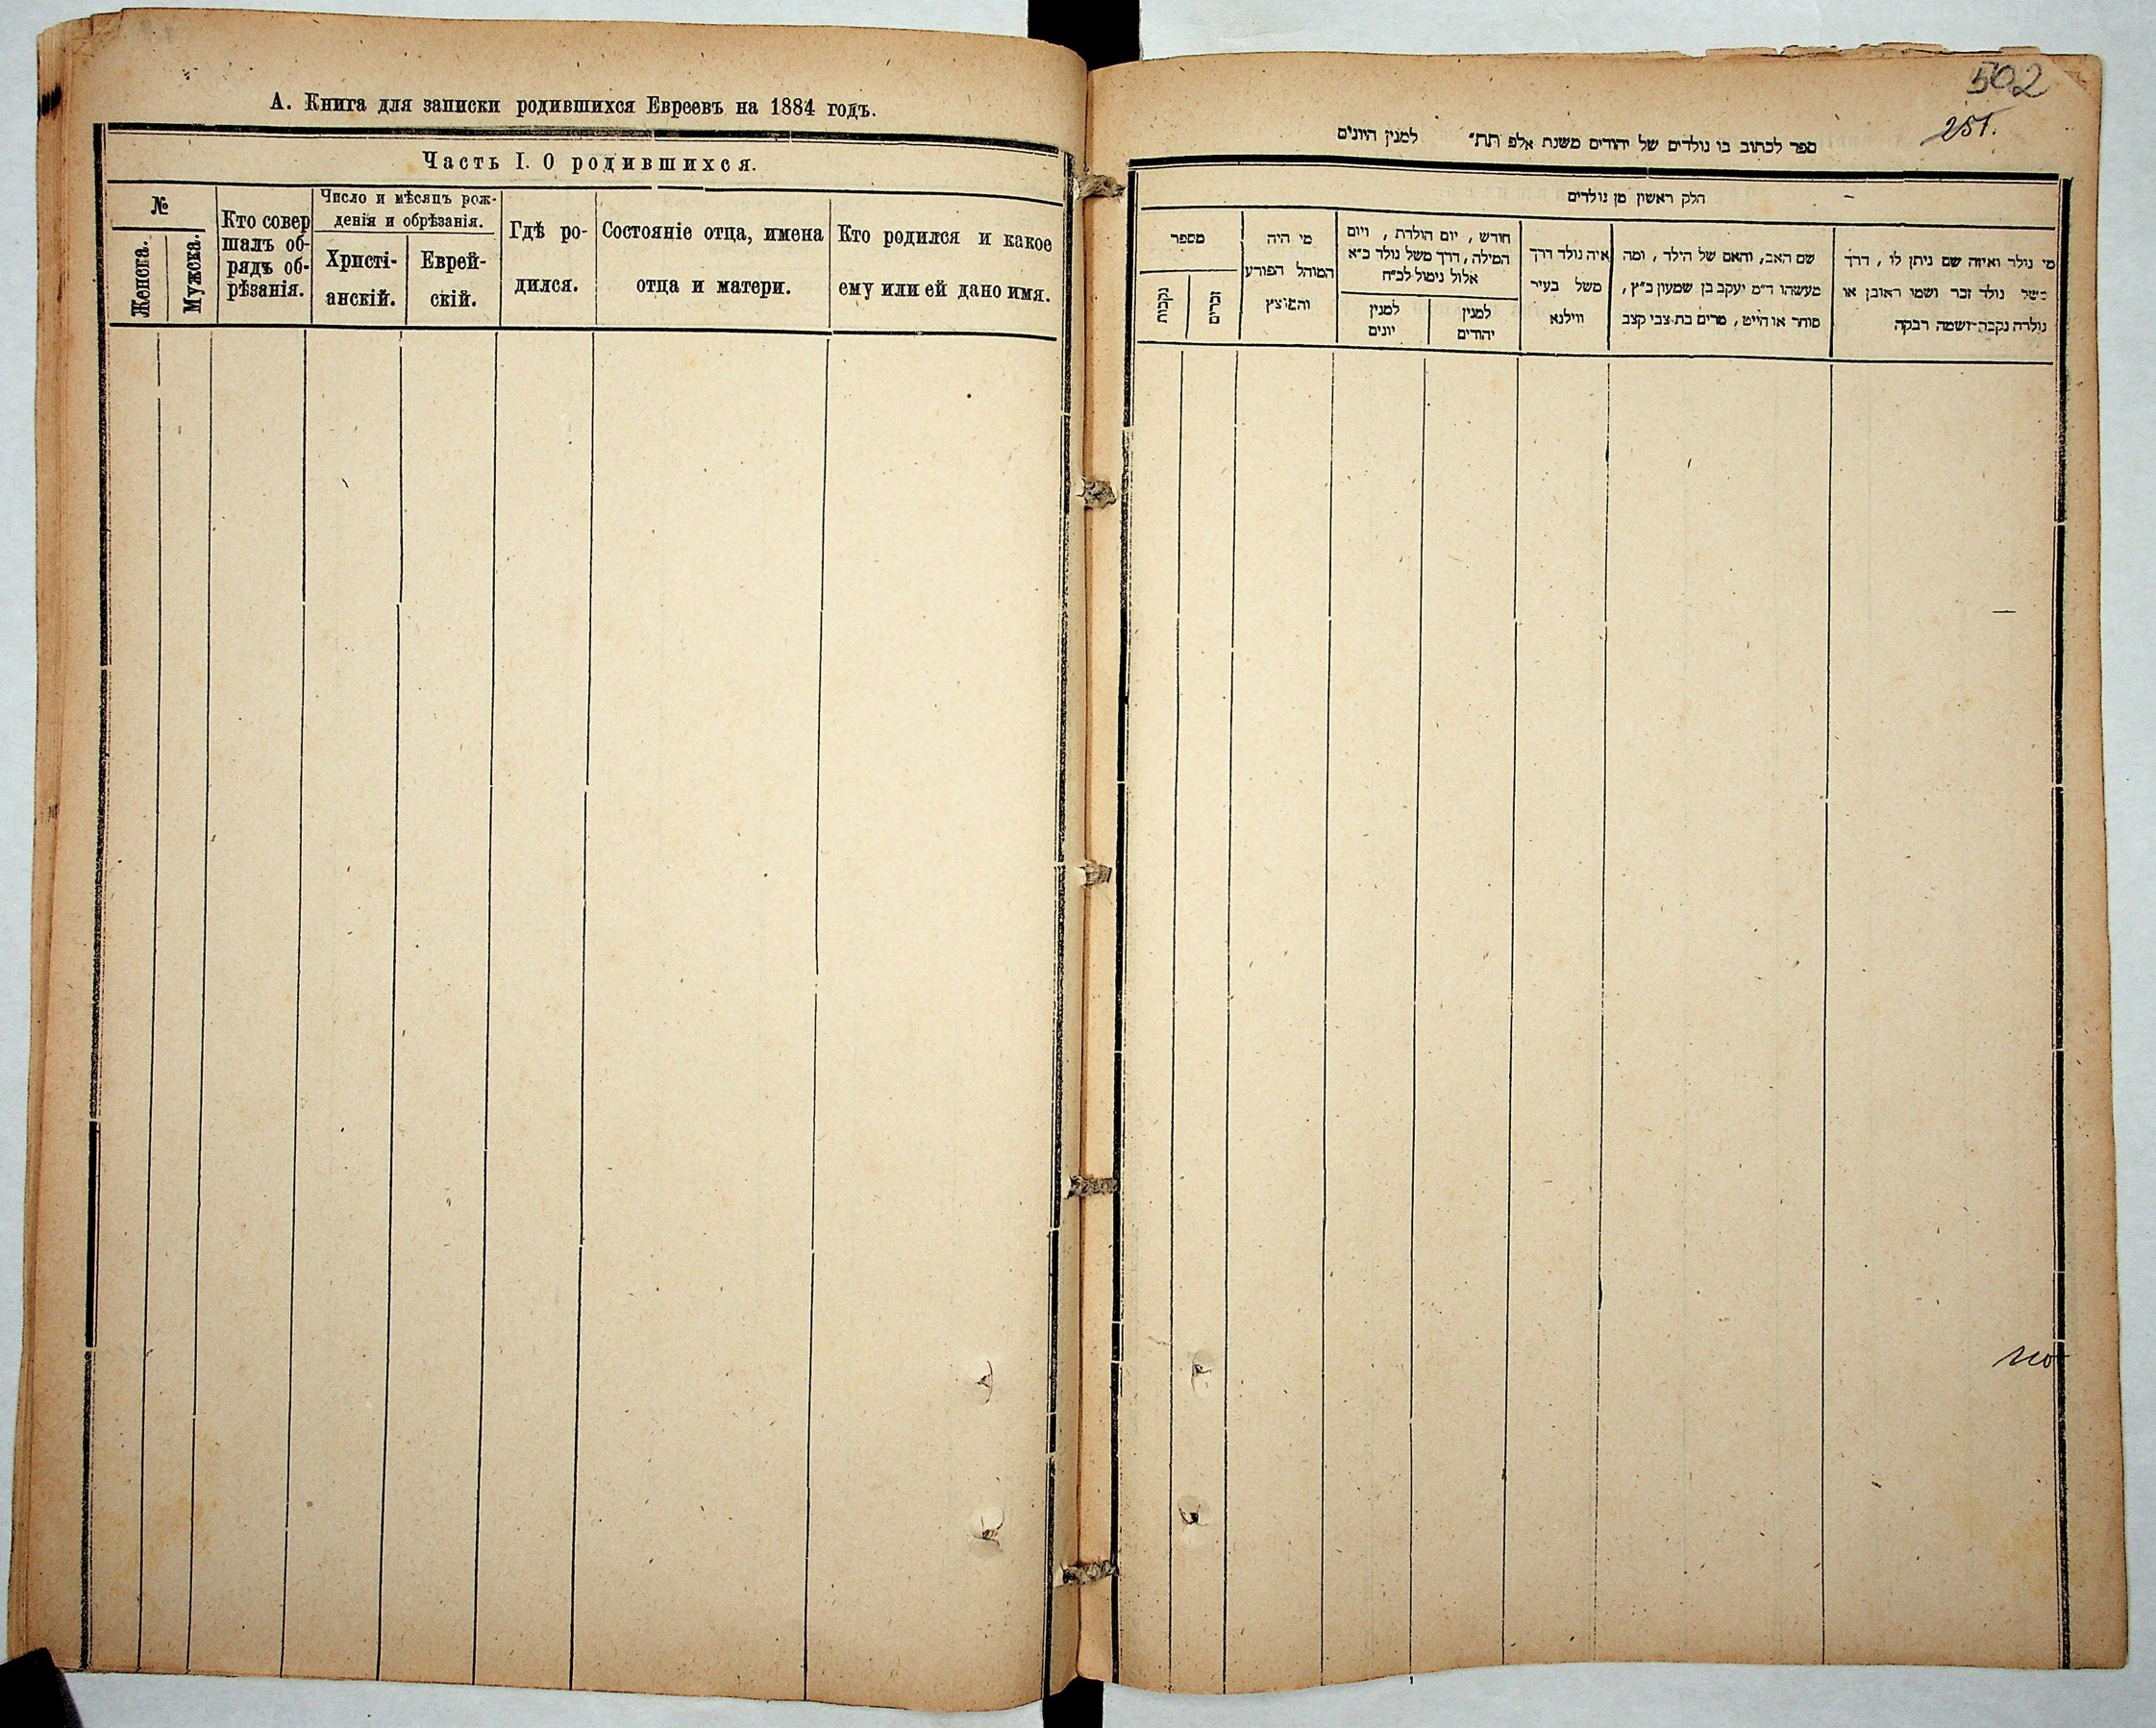 А. Книга для записки родившихся Евреевъ на 1884 годъ.
Часть I. О родившихся.
№
Женска.
Мужска.
Кто совер
шалъ об-
рядъ об-
рѣзанія.
Число и мѣсяцъ рож-
денія и обрѣзанія.
Христі-
анскій.
Еврей-
скій.
Гдѣ ро-
дился.
Состояніе отца, имена
отца и матери.
Кто родился и какое
ему или ей дано имя.
502
251.
ספר לכתוב בו נולדים של יהודים משנת אלפ תת״ למנין היונים
חלק ראשון מן נולדים
מספר
נקבות
זכרים
מי היה
המוהל הפורע
והמוצץ
חודש, יום הולדת, ויום
המילה, דרך משל נולד כ״א
אלול נימול לכ״ח
למנין
יונים
למנין
יהודים
איה נולד דרך
משל בעיר
ווילנא
שם האב, והאם של הילד, ומה
מעשהו ד״מ יעקב בן שמעון כ״ץ,
סוחר או חייט, מרים בת צבי קצב
מי נולד ואיזה שם ניתן לו, דרך
משל נולד זכר ושמו ראובן או
נולדה נקבה ושמה רבקה